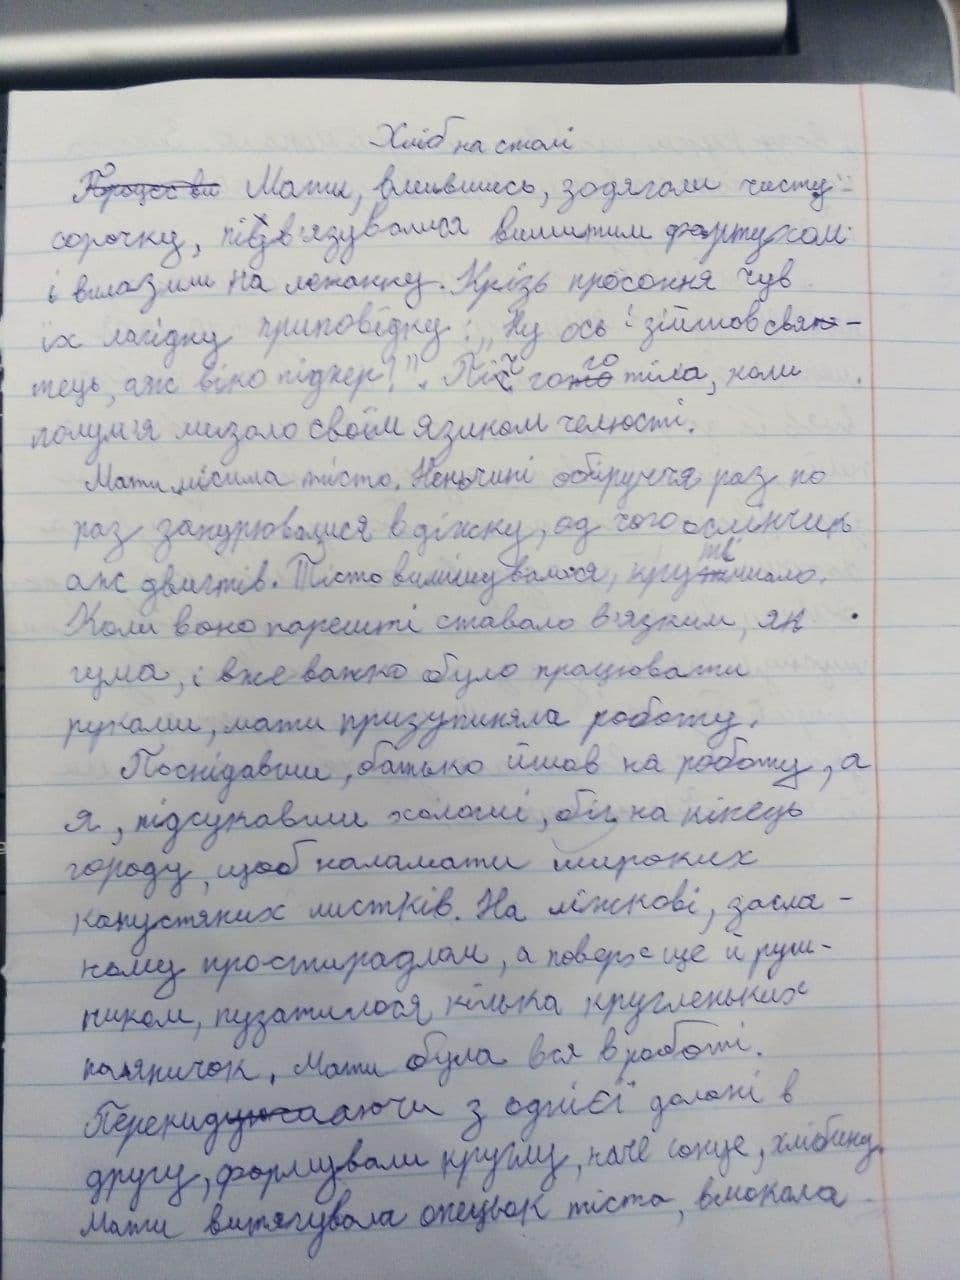 Хліб на столі
Мати, вмившись, зодягали чисту
сорочку, підв'язувалися вишитим фартухом
і вилазили на лежанку. Крізь просоння чув
їх лагідну приповідку: „Ну ось і зійшов свя-
тець, аж віко підпер!". Піч гоготіла, коли
полум'я лизало своїм язиком челюсті.
Мати місила тісто. Неньчині обіруччя раз по
раз занурювалися в діжку, од чого ослінчик
аж двигтів. Тісто вимішувалося, крутнчило.
Коли воно нарешті ставало в'язким, як
гума, і вже важко було працювати
руками, мати призупиняла роботу.
Поснідавши, батько йшов на роботу, а
я, підсукавши холоші, біг на кінець
городу, щоб наламати широких
капустяних листків. На ліжкові, засла-
ному простирадлом, а поверх ще й руш-
ником, пузатилося кілька кругленьких
паляничок. Мати була вся в роботі.
Перекидаючи з однієї долоні в
другу, формували круглу, наче сонце, хлібину.
Мати витягувала опецьок тіста, вмокала